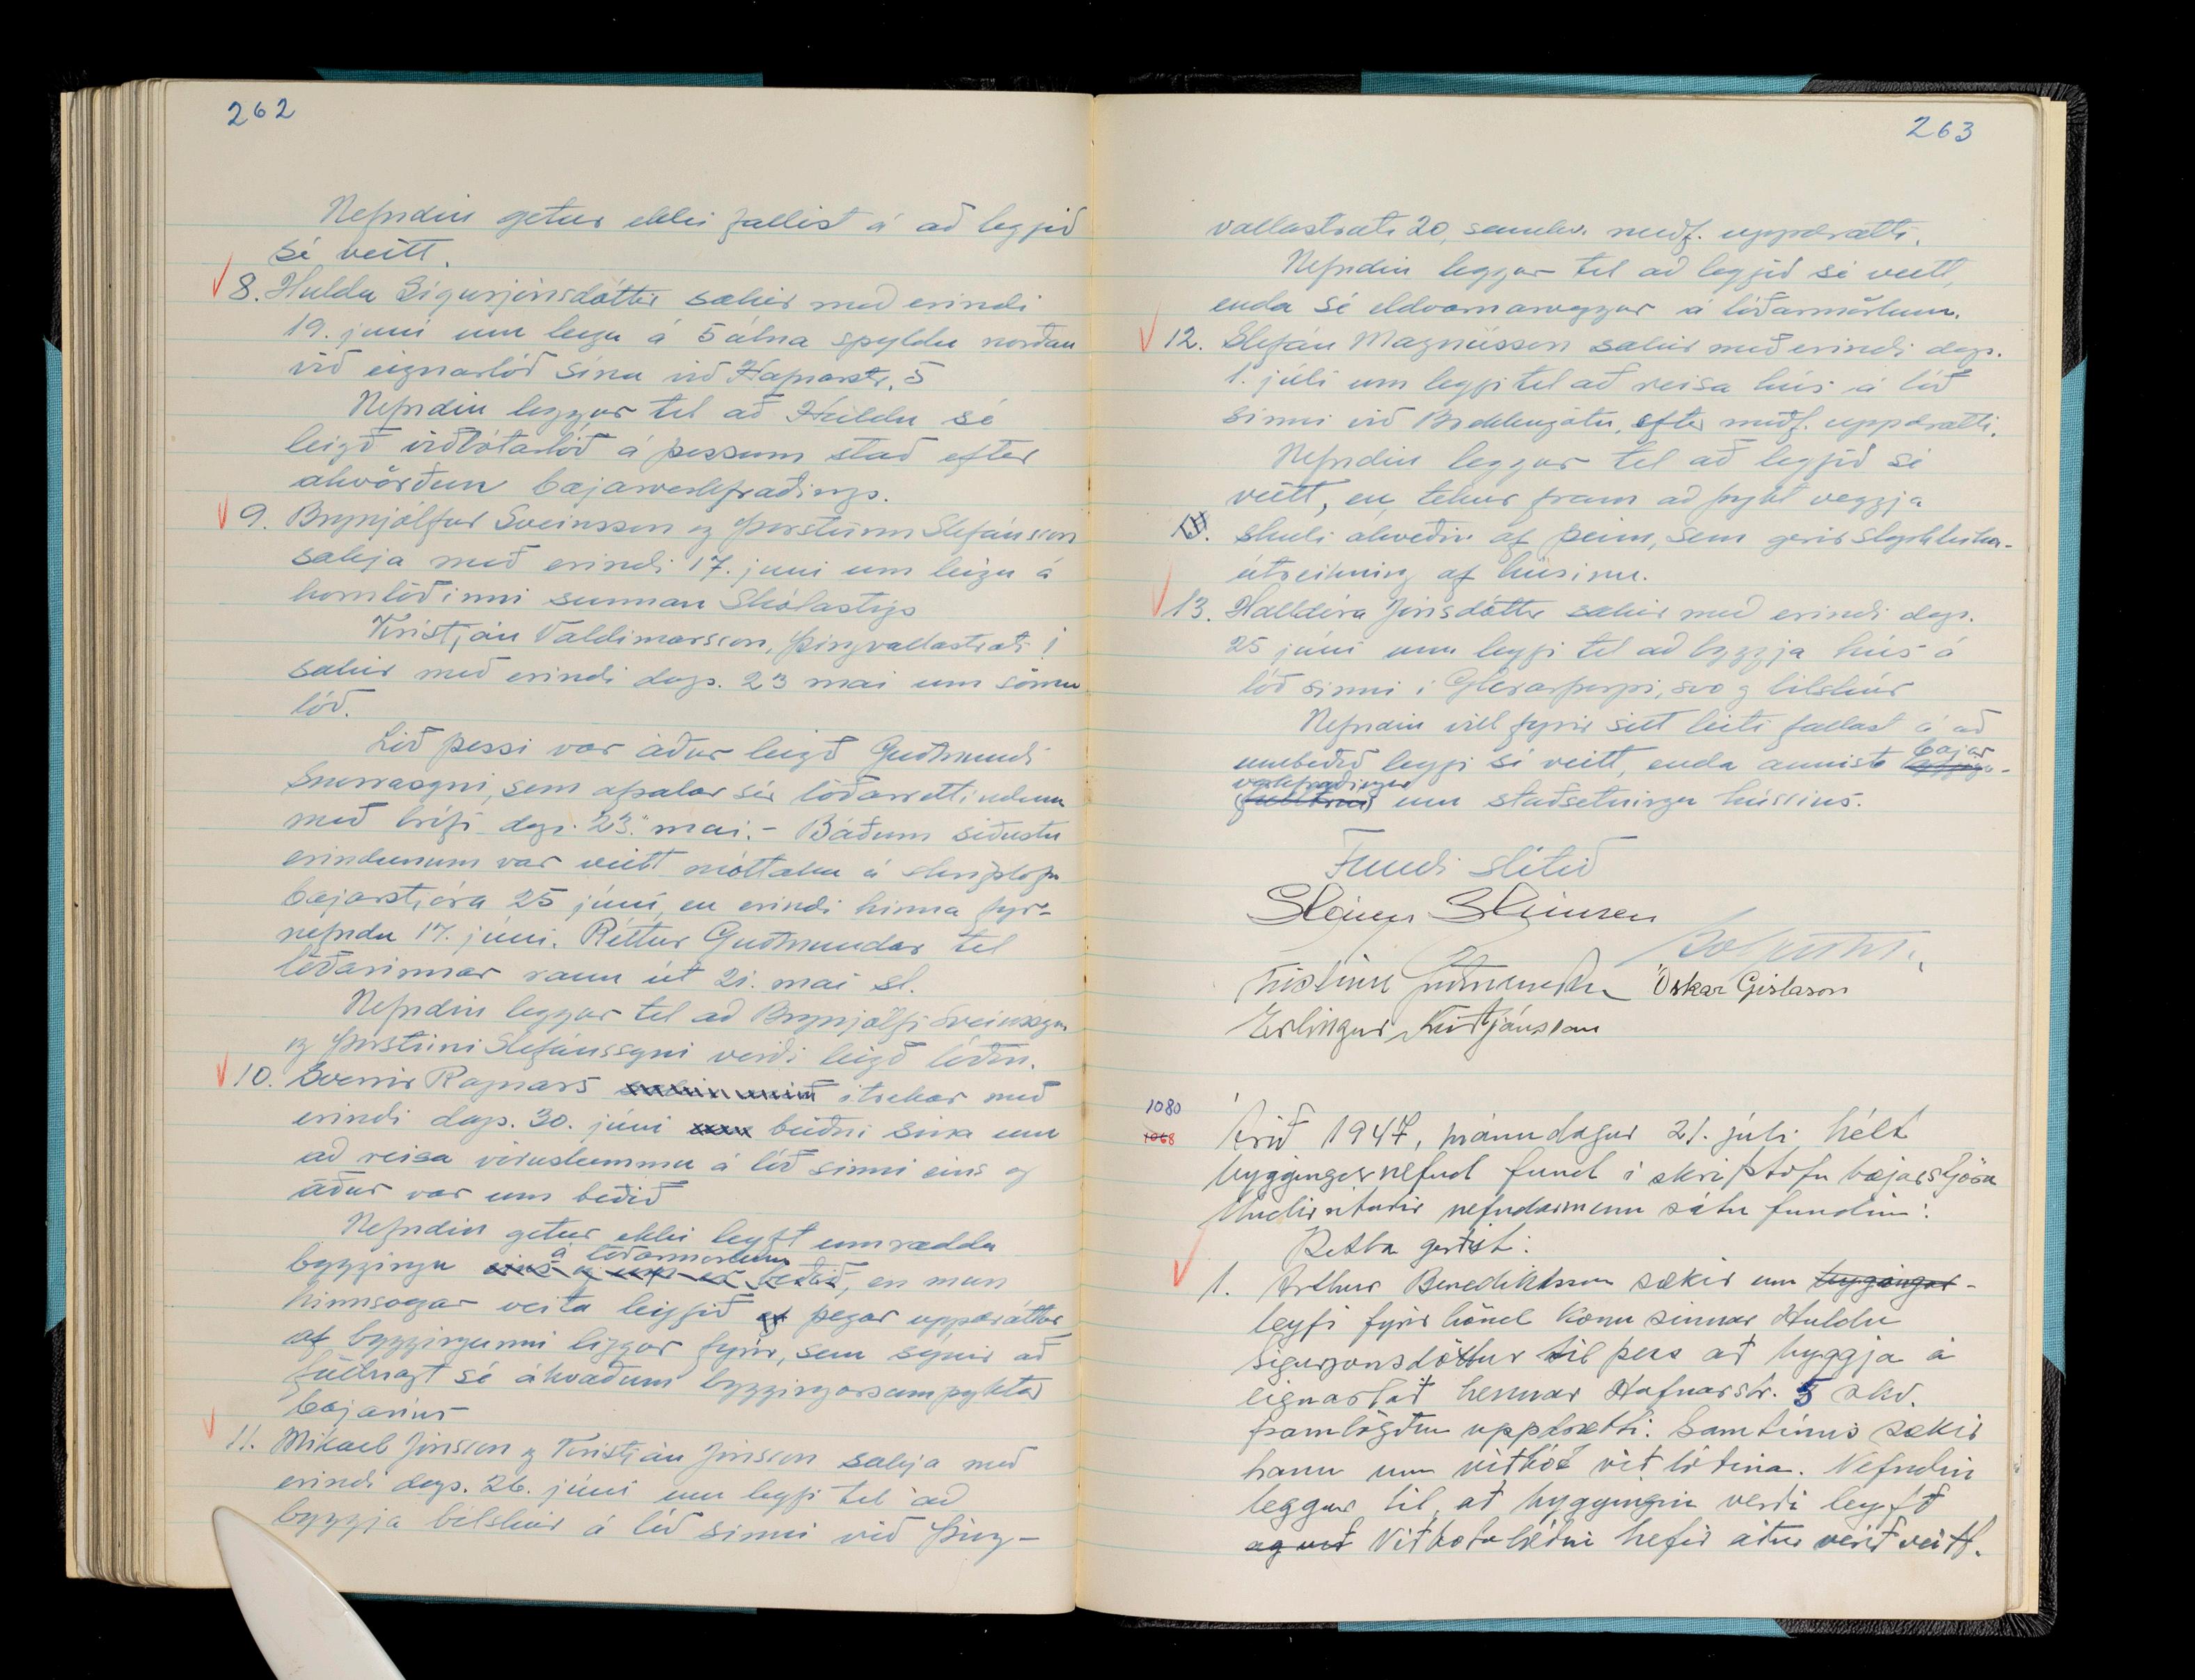 262
Nefndin getur ekki fallist á að leyfið
sé veitt.
8. Hulda Sigurjónsdóttir sækir með erindi
19. júní um leigu á 5 álna spyldu norðan
við eignarlóð sína við Hafnarstr. 5
Nefndin leggur til að Huldu sé
leigð viðbótarlóð á þessum stað eftir
ákvörðun bæjarverkfræðings.
9. Brynjólfur Sveinsson og Þorsteinn Stefánsson
sækja með erindi 17. júní um leigu á
hornlóðinni sunnan Skólastígs
Kristján Valdimarsson, Þingvallastræti
sækir með erindi dags. 23 mai um sömu
lóð.
Lóð þessi var áður leigð Guðmundi
Snorrasyni, sem afsalar sér lóðarréttindum
með bréfi dags. 23. mai. - Báðum síðustu
erindunum var veitt móttaka á skrifstofu
bæjarstjóra 25 júní, en erindi hinna fyr-
nefndu 17. júní. Réttur Guðmundar til
lóðarinnar rann út 21. mai sl.
Nefndin leggur til að Brynjólfi Sveinssyni
og Þorsteini Stefánssyni verði leigð lóðin.
10. Sverrir Ragnars ítrekar með
erindi dags. 30. júní beiðni sína um
að reisa vöruskemmu á lóð sinni eins og
áður var um beðið
Nefndin getur ekki leyft umrædda
á lóðarmörkum
byggingu eins og um er beðið, en mun
hinnsvegar veita leyfið þegar uppdráttur
af byggingunni liggur fyrir, sem sýnir að
fullnægt sé ákvæðum byggingarsamþyktar
bæjarins
11. Mikael Jónsson og Kristján Jónsson sækja með
erindi dags. 26. júní um leyfi til að
byggja bílskúr á lóð sinni við Þing-
263
vallastræti 20, samkv. meðf. uppdrætti.
Nefndin leggur til að leyfið sé veitt,
enda sé eldvarnarveggur á lóðarmörkum.
12. Stefán Magnússon sækir með erindi dags.
1. júlí um leyfi til að reisa hús á lóð
sinni við Brekkugötu, eftir meðf. uppdrætti.
Nefndin leggur til að leyfið sé
veitt, en tekur fram að þykt veggja
skuli ákveðin af þeim, sem gerir styrkleika-
útreikning af húsinu.
13. Halldóra Jónsdóttir sækir með erindi dags.
25 júní um leyfi til að byggja hús á
lóð sinni í Glerárþorpi, svo og bílskúr
Nefndin vill fyrir sitt leiti fallast á að
bæjar
umbeðið leyfi sé veitt, enda annist
verkfræðingur
um staðsetningu hússins.
Fundi slitið
Steinn Steinsen
Tristinn Guðmundss. Óskar Gíslason
Erlingur Kristjánsson
1080
1068
Árið 1947, mánudagur 21. júli hélt
byggingarnefnd fund í skrifstofu bæjarstjóra
Undirritaðir nefndarmenn sátu fundinn:
Þetta gerðist:
1. Arthur Benediktsson sækir um byggingar-
leyfi fyrir hönd konu sinnar Huldu
Sigurjonsdóttur til þess að byggja á
eignarlóð hennar Hafnarstr. 5 skv.
framlögðum uppdrætti. Samtímis sækir
hann um viðbót við lóðina. Nefndin
leggur til, að byggingin verði leyfð
og við Viðbótarlóðin hefir áður verið veitt.